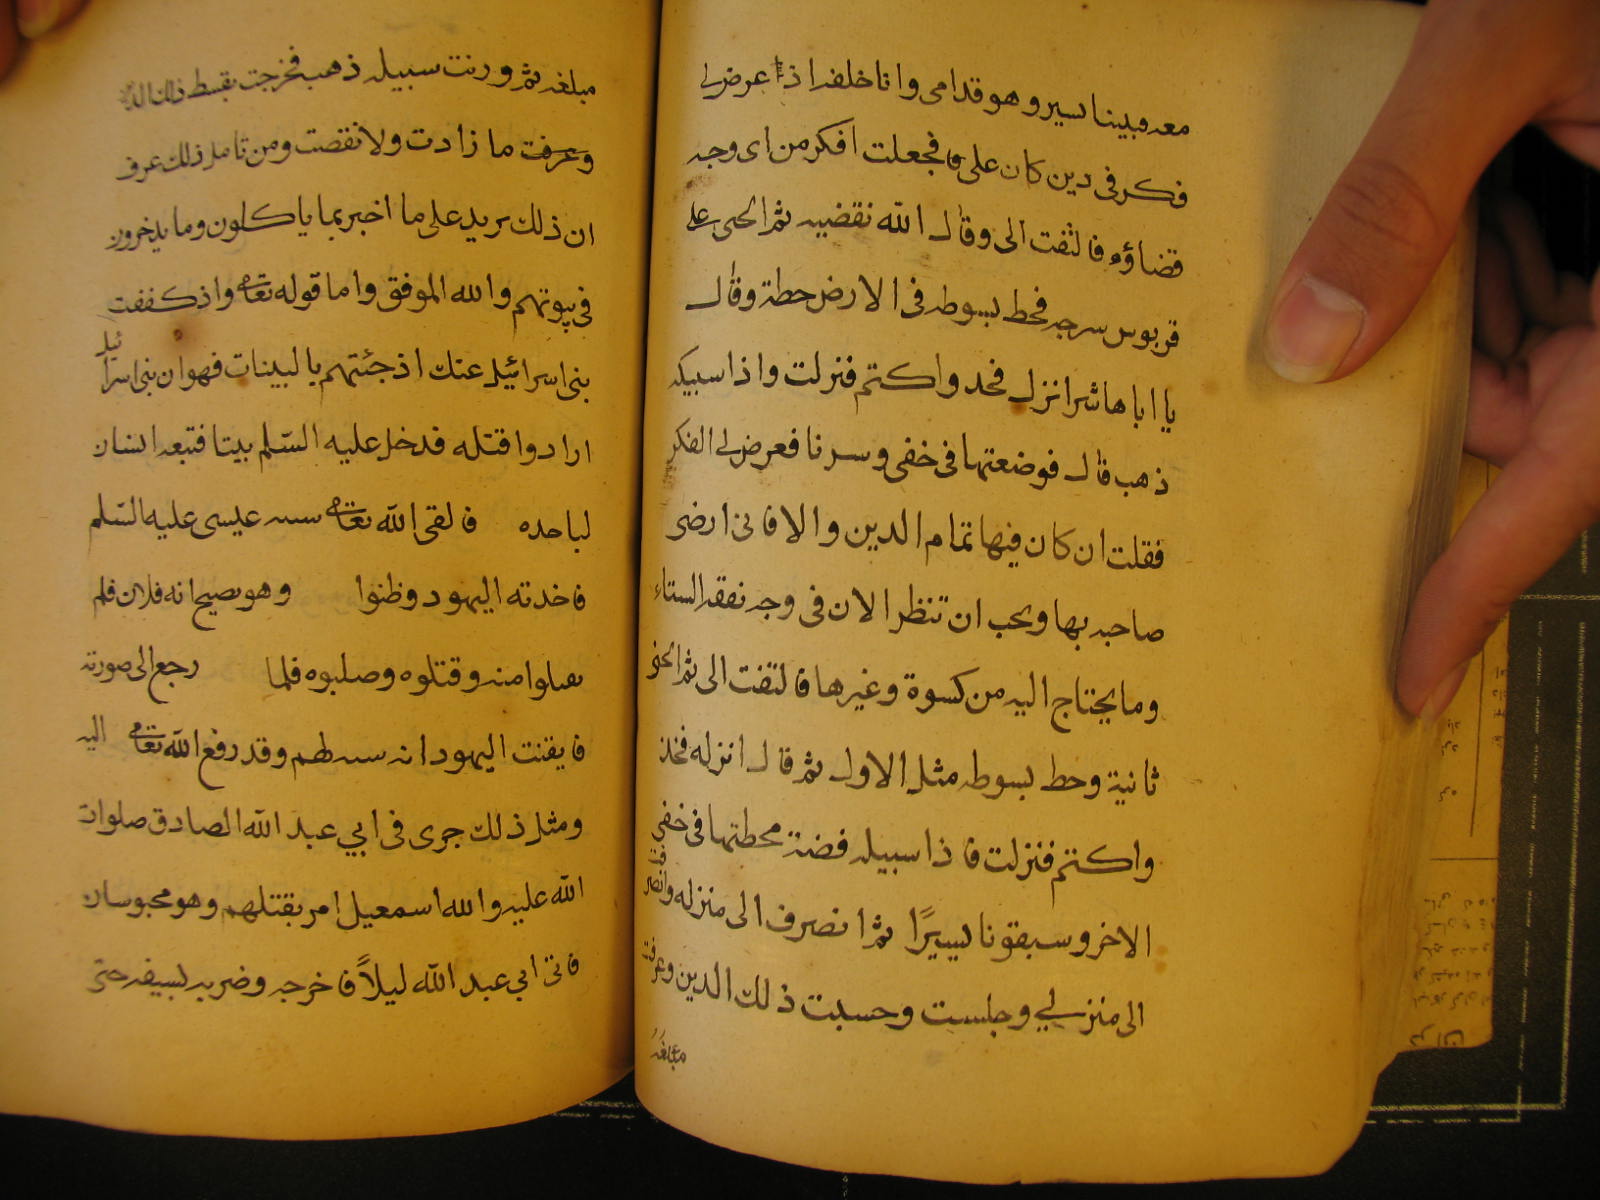 معه فبينا نسير وهو قدامى وانا خلفه اذ عرض لى
فكر فى دين كان على فجعلت افكر من اى وجه
قضاؤه فالتفت الى وقال الله نقضيه ثم انحنى على
قربوس سرجه فخط بسوطه فى الارض خطة وقال
يا ابا هاشم انزل فخذ واكتم فنزلت واذا سبيكة
ذهب قال فوضعتها فى خفى وسرنا فعرض لى الفكر
فقلت ان كان فيها تمام الدين والا فانى ارضى
صاحبه بها ويجب ان تنظر الان فى وجه نفقة الشتاء
وما يحتاج اليه من كسوة وغيرها فالتفت الى ثم انحنى
ثانية وخط بسوطه مثل الاول ثم قال انزل فخذ
واكتم فنزلت فاذا سبيكه فضة فحططتها فى خفى
الاخر وسيقونا يسيرًا ثم انصرف الى منزله وانصرفت
الى منزلي وجلست وحسبت ذلك الدين وعرفت
مبلغه
مبلغه ثم وزنت سبيكه ذهب فخرجت بقسط ذلك الدين
وعرفت ما زادت ولا نقصت ومن تامل ذلك عرف
ان ذلك يريد على ما اخبر بما ياكلون وما يدخرون
فى بيوتهم والله الموفق واما قوله تعالى واذ كففت
بنى اسرائيل عنك اذ جئتهم بالبينات فهو ان بنى اسرائيل
ارادوا قتله فدخل عليه السلم بيتا فتبعه انسان
لياخده فالقى الله تعالى عيسى عليه السلم
فاخدته اليهود وظنوا وهو يصيح انه فلان فلم
يقبلوا منه وقتلوه وصلبوه فلما رجع الى صورته
فايقنت اليهود انه وقد رفع الله تعالى اليه
ومثل ذلك جرى فى ابي عبد الله الصادق صلوات
الله عليه والله اسمعيل امر بقتلهم وهو محبوسان
فاتى ابي عبد الله ليلاً فاخرجه وضربه بسيفه حتى